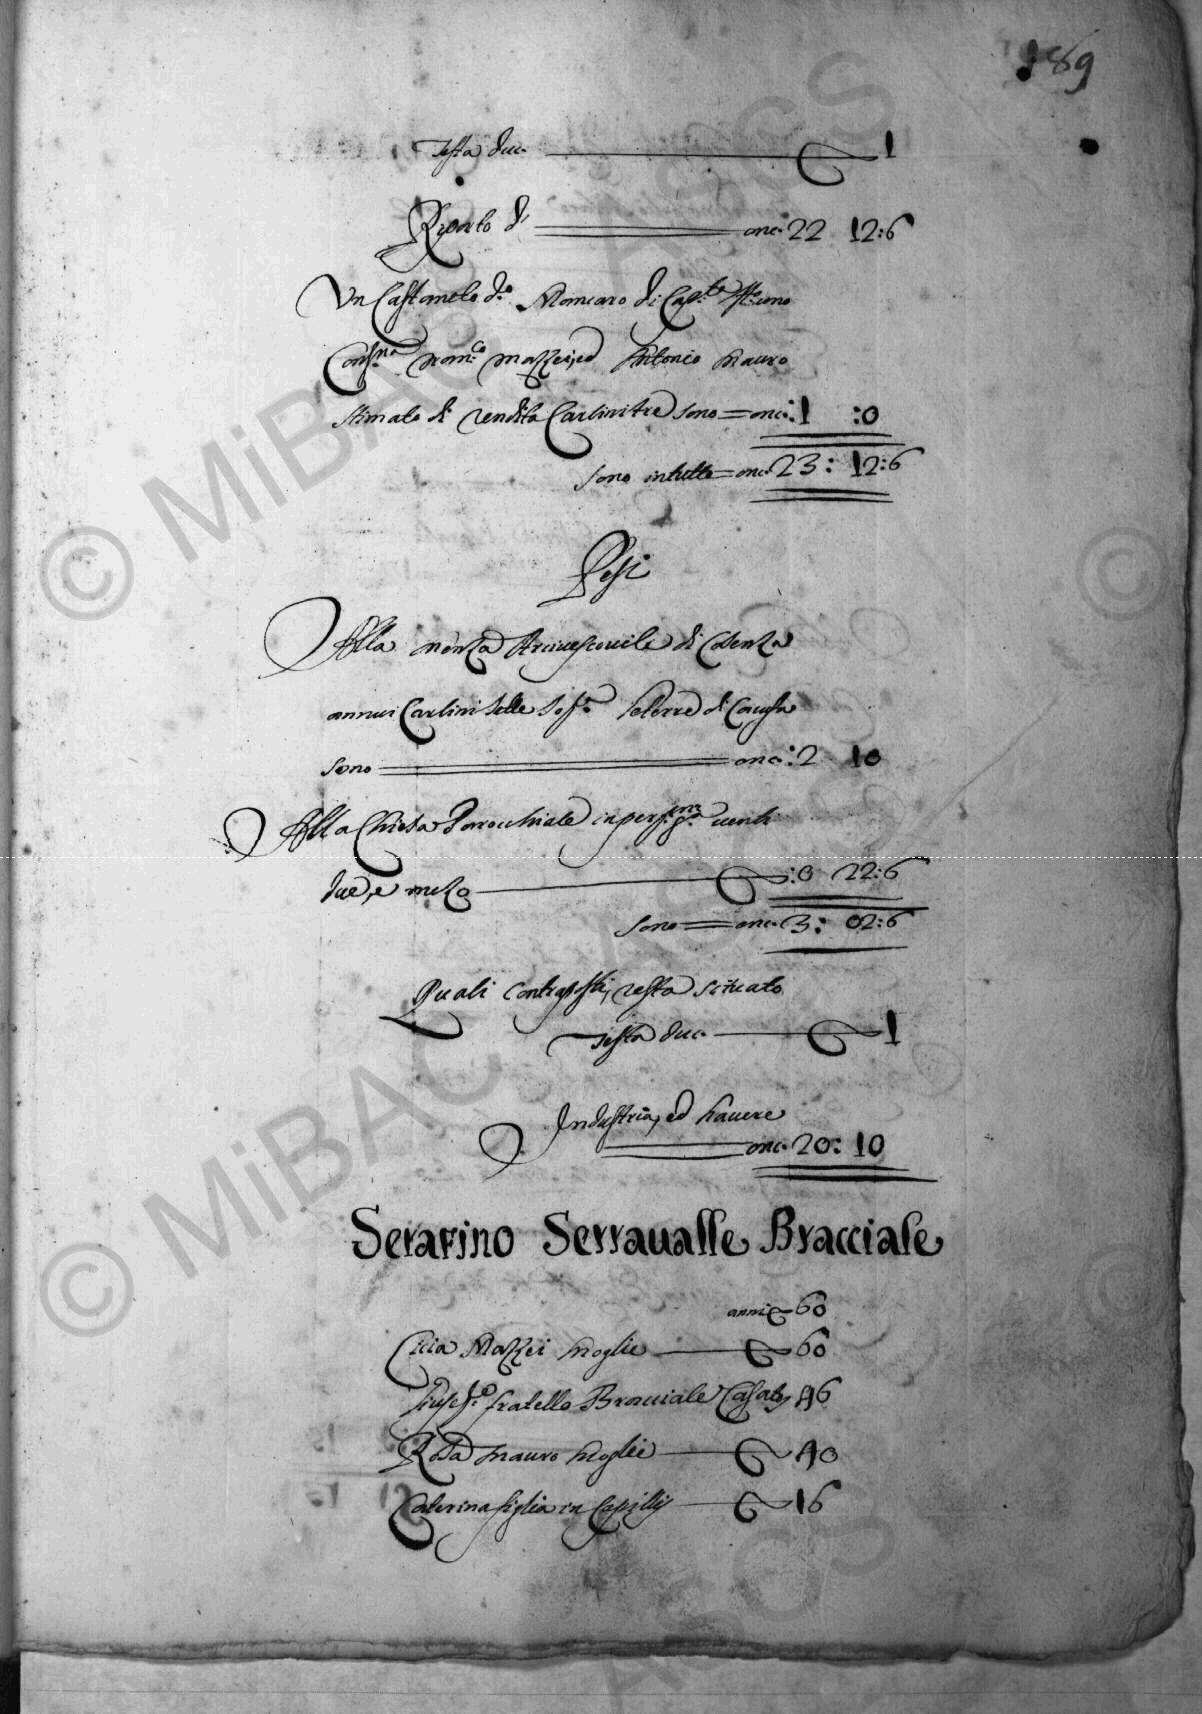 189
Testa duc. 1
Riporto di onc. 22 12:6
Un Castaneto d.o Moncaro di Cap.tà
Conf.na Dom.co Mazzei, ed Antonio Mauro
stimato di rendita Carlini tre sono onc: 1 :0
sono in tutto onc. 23: 12:6
Pesi
Alla Menza Arcivescovile di Cosenza
annui Carlini sette le terre di
sono onc: 2 10
Alla Chiesa Parocchiale venti
due, e mezo :0 22:6
sono onc. 3: 02:6
Quali contraposti, resta situato
Testa duc. 1
Industria, ed havere
onc. 20: 10
Serafino Serravalle Bracciale
anni 60
Cicia Mazzei moglie 60
fratello Bracciale Casato 46
Rosa Mauro moglie 40
Caterina figlia in Capillis 16
© MiBAC ASCS
© MiBAC ASCS